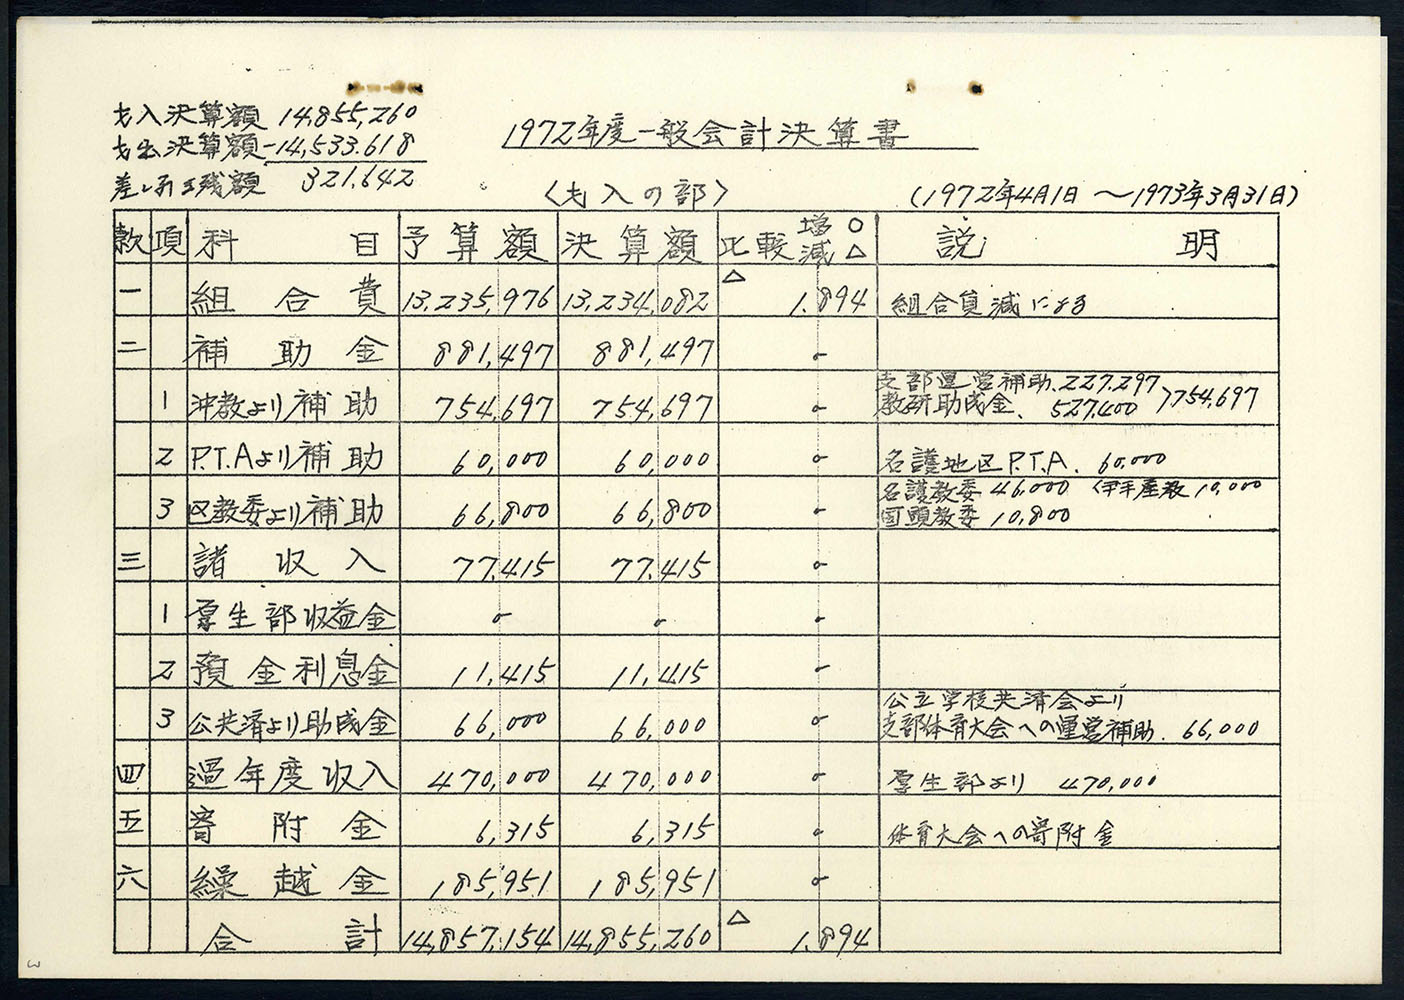 才入決算額 14,855,260
才出決算額 -14,533.618
差し引き残額 321.642
1972年度一般会計決算書
〈才入の部〉
(1972年4月1日 〜1973年3月31日)
款 項 科目 予算額 決算額 比較 増○ 減△ 説明
一 組合費 13,235,976 13,234,082 △1.894 組合員減による
二 補助金 881,497 881,497 0
1 沖教より補助 754,697 754,697 0 支部運営補助、227,297 教研助成金、527,400 〉754,697
2 P.T.Aより補助 60,000 60,000 0 名護地区P.T.A. 60,000
3 区教委より補助 66,800 66,800 0 名護教委 46,000 10,000
国頭教委 10,800
三 諸収入 77.415 77.415 0
1 厚生部収益金 0 0 0
2 預金利息金 11,415 11,415 0
3 公共済より助成金 66,000 66,000 0 公立学校共済会より
支部体育大会への運営補助. 66,000
四 過年度収入 470,000 470,000 0 厚生部より 470,000
五 寄附金 6,315 6,315 0 体育大会への寄附金
六 繰越金 185,951 185,951 0
合計 14,857,154 14,855,260 △1.894